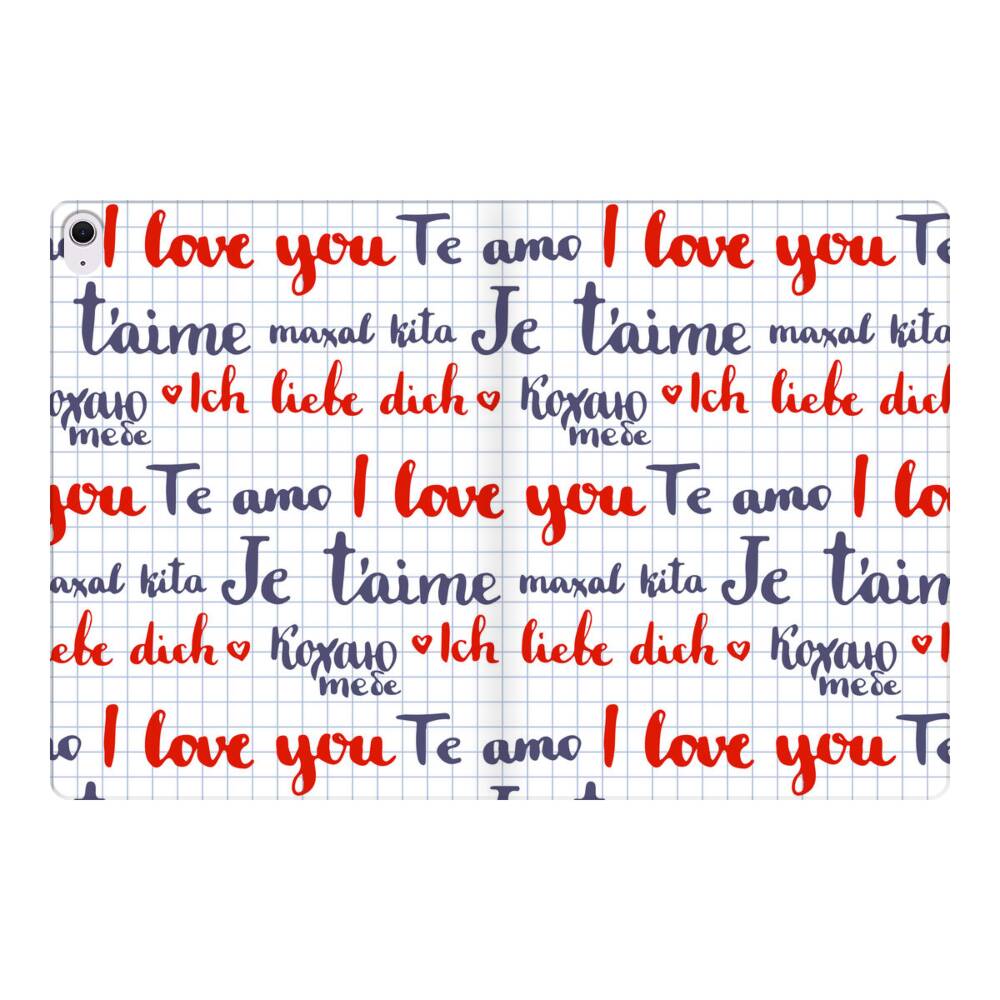 I love you Te amo I love you Te
t'aime maxal kita Je t'aime maxal kita
Кохаю ♥Ich liebe dich♥ Кохаю ♥Ich liebe dich
тебе тебе
you Te amo I love you Te amo I lo
axal kita Je t'aime maxal kita Je t'aim
ebe dich♥ Кохаю ♥Ich liebe dich♥ Кохаю ♥I
тебе тебе
mo I love you Te amo I love you Te